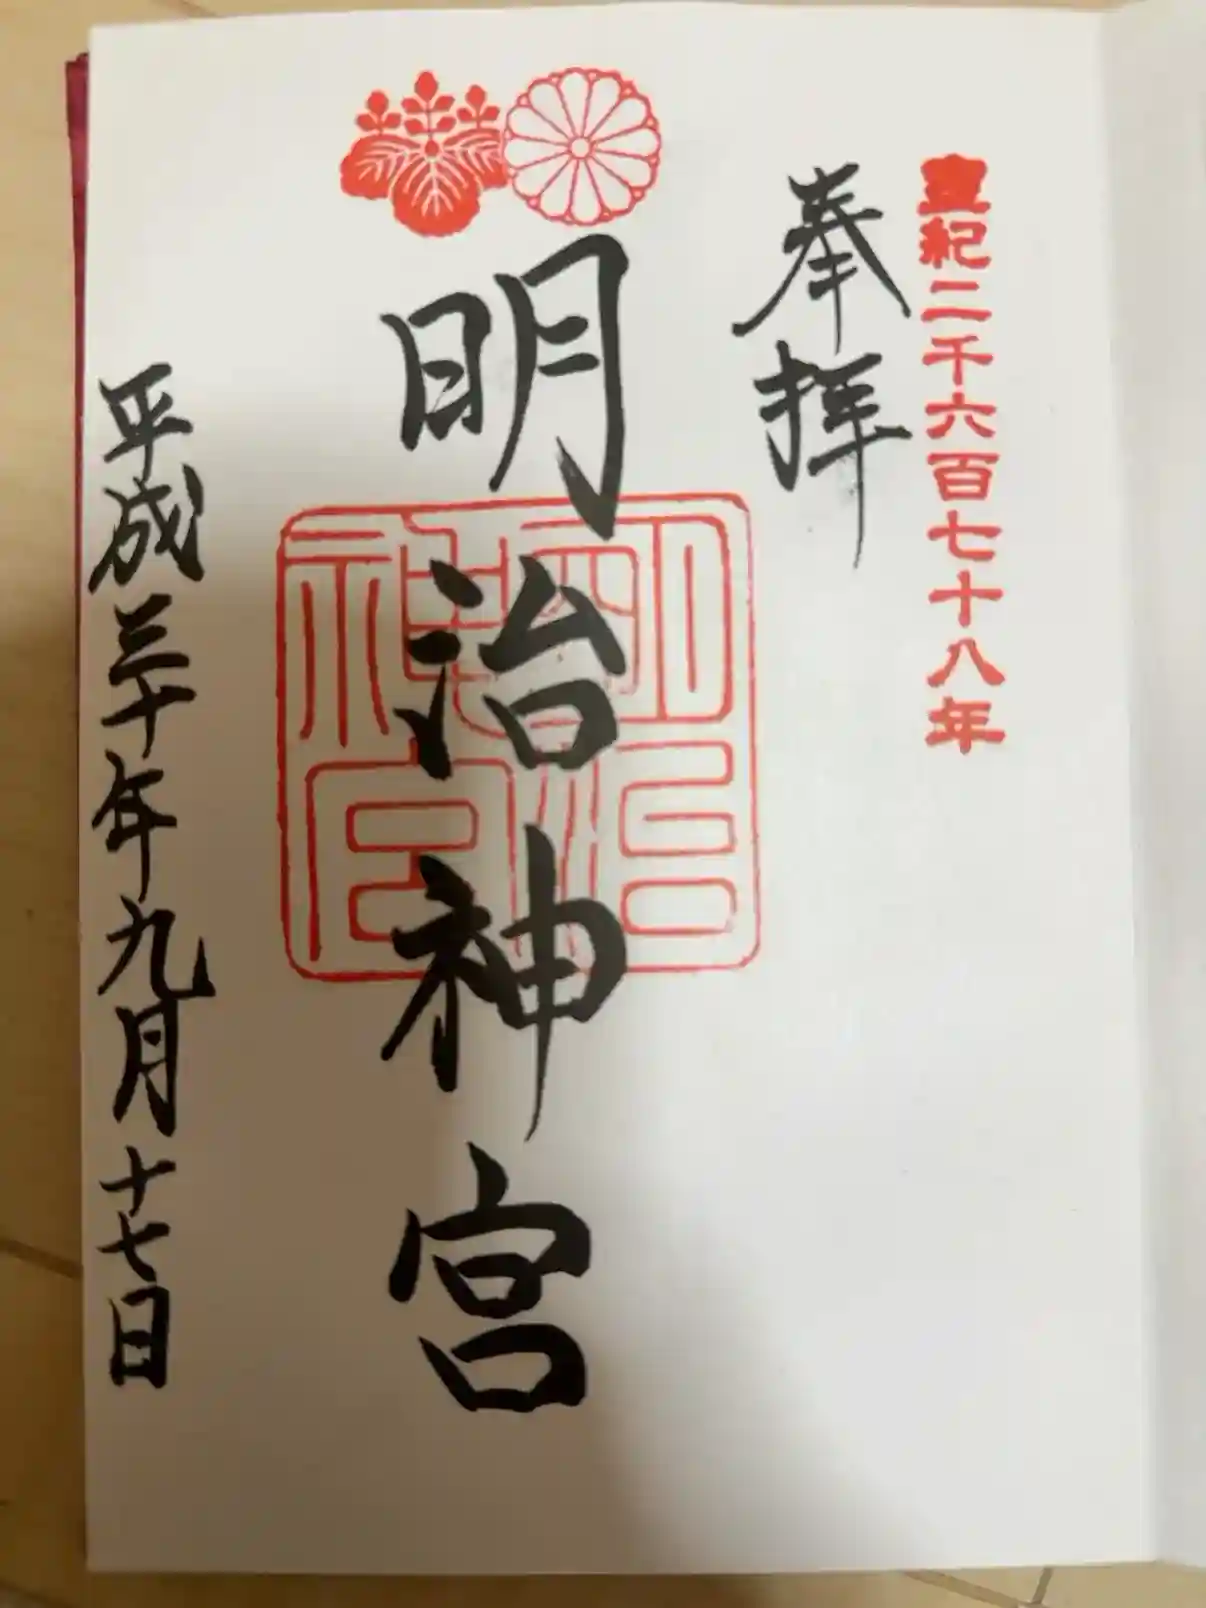 皇紀二千六百七十八年
奉拝
明治神宮
明治神宮
平成三十年九月十七日